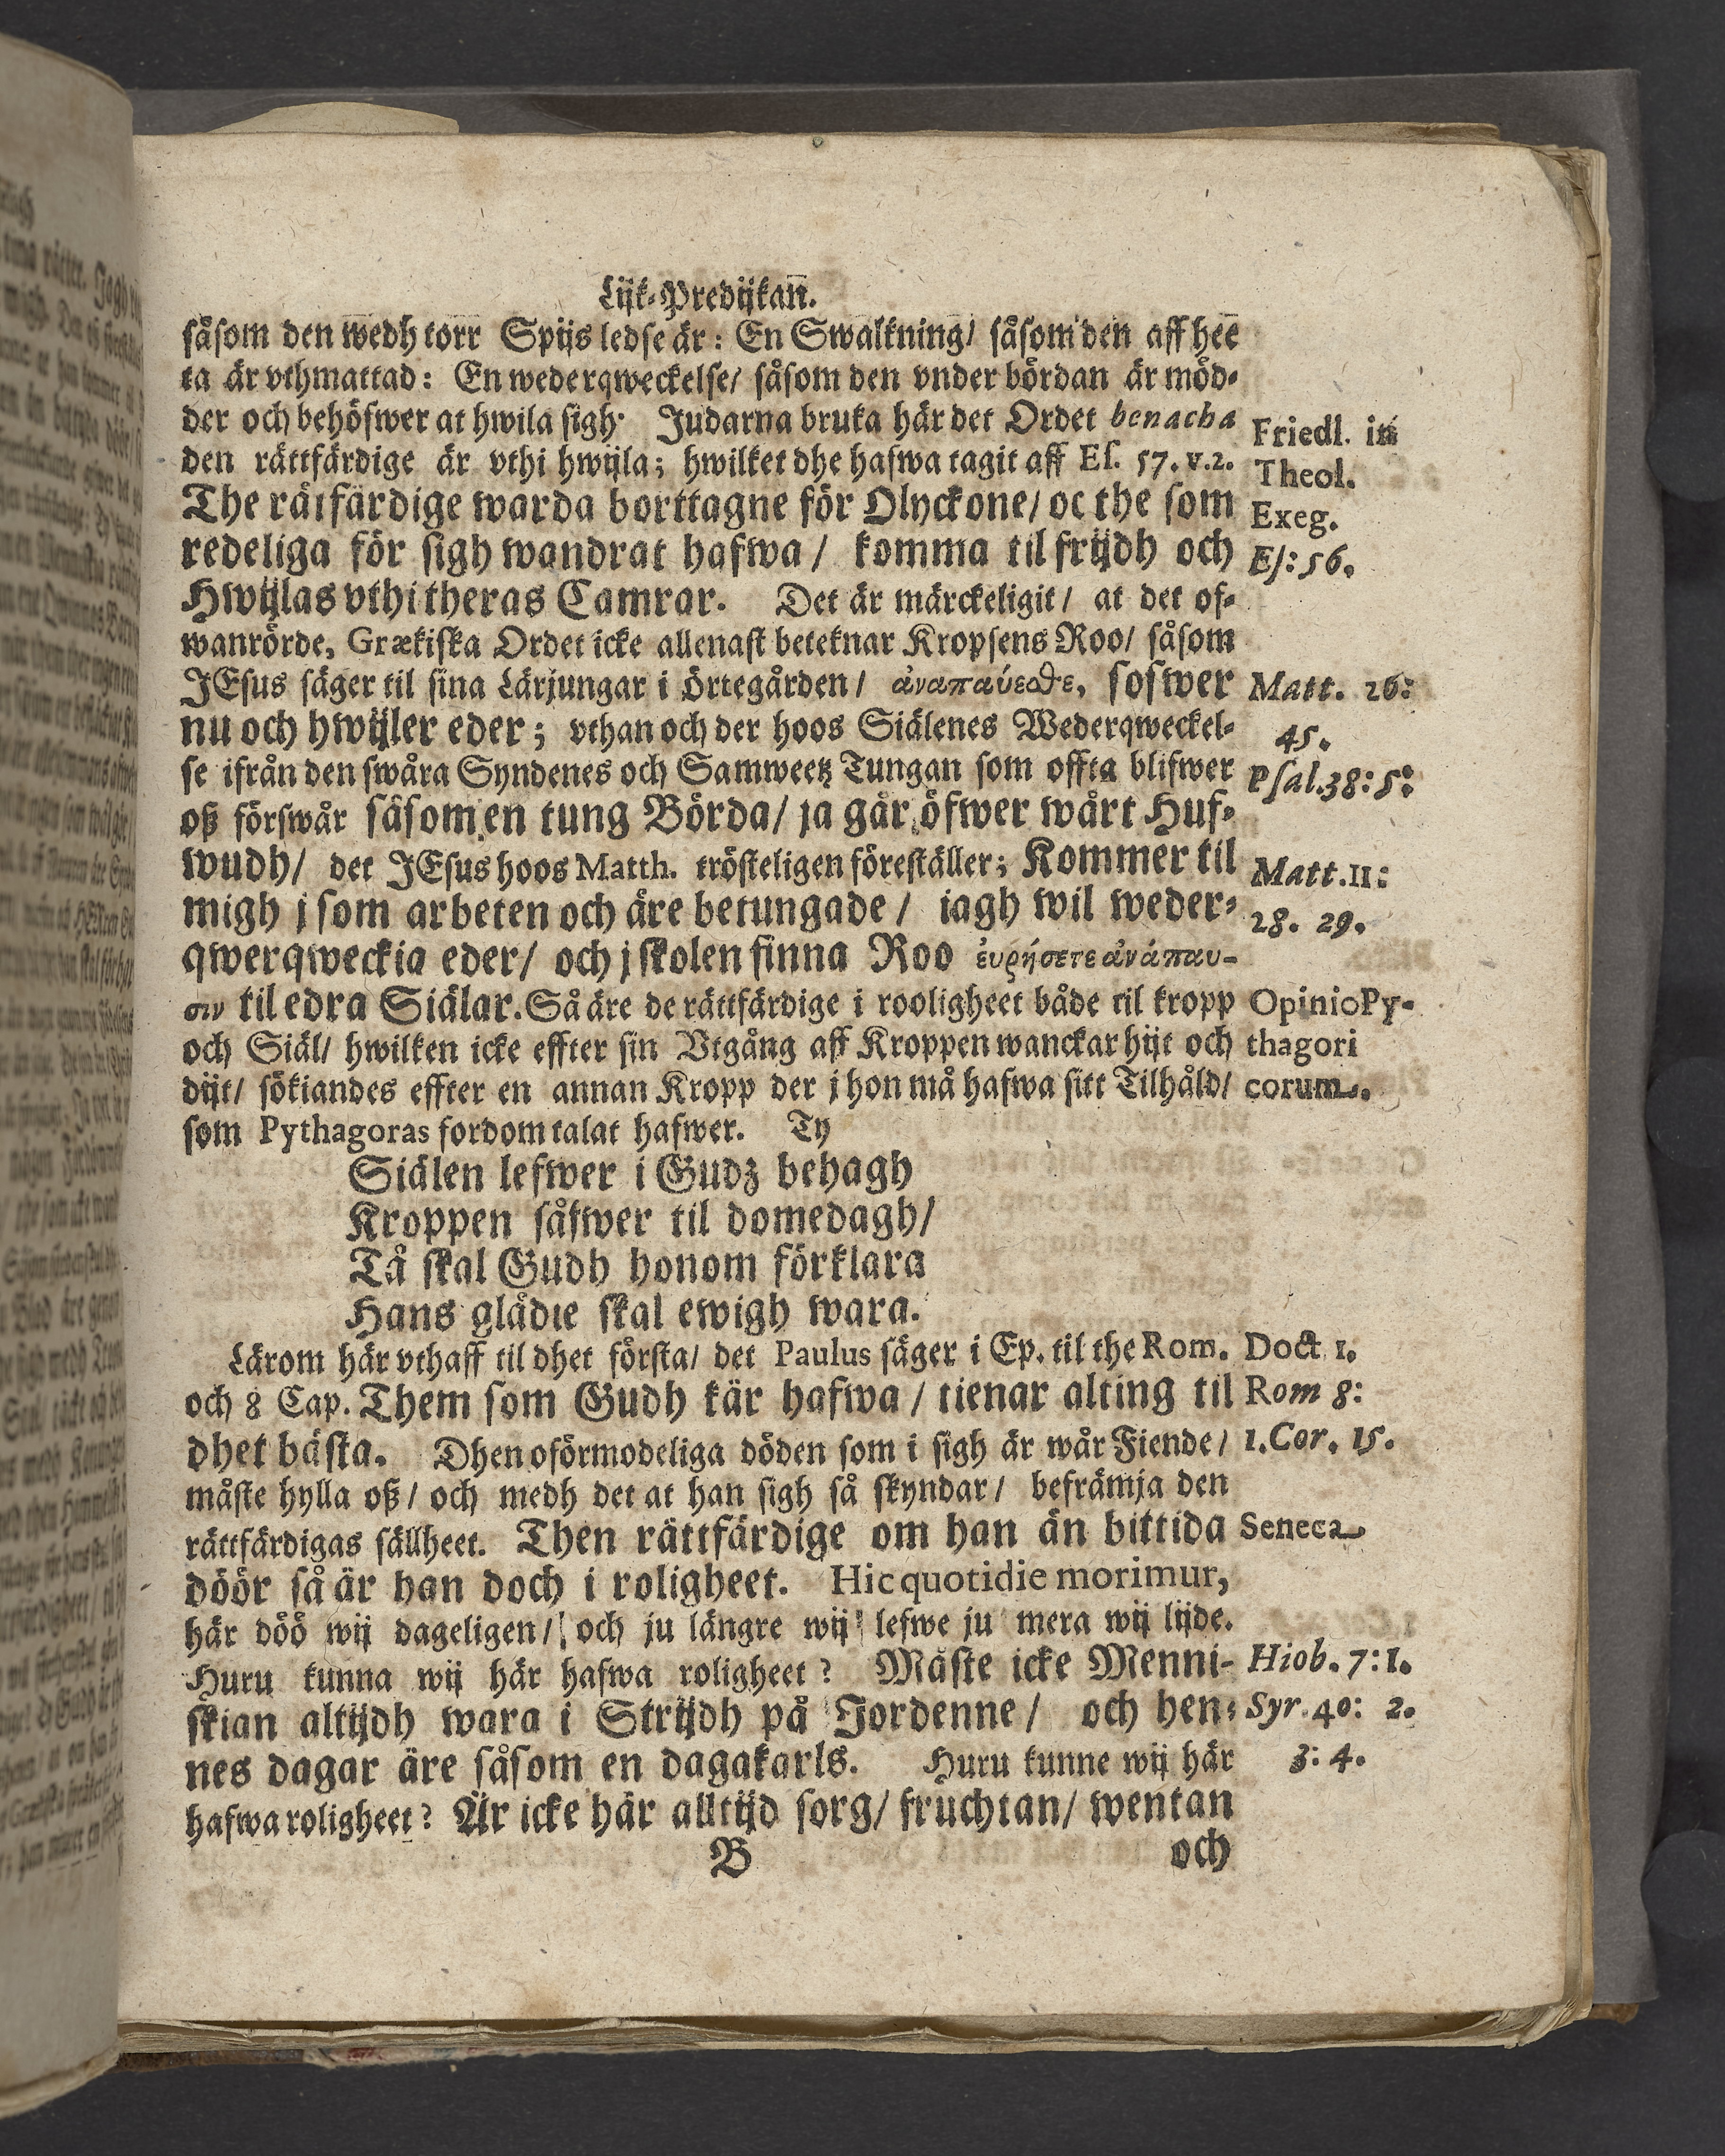 Lijk-Predijkan̄.
såsom den wedh torr Spijs ledse är: En Swalkning/ såsom den aff hee
ta är vthmattad: En wederqweckelse/ såsom den vnder bördan är möd-
der och behöfwer at hwila sigh. Judarna bruka här det Ordet benacha
Friedl. in
den rättfärdige är vthi hwijla; hwilket dhe hafwa tagit aff Es. 57. v.2.
Theol.
The rätfärdige warda borttagne för Olyckone/ oc the som
Exeg.
redeliga för sigh wandrat hafwa / komma til frijdh och
Es: 56.
Hwijlas vthi theras Camrar. Det är märckeligit / at det of-
wanrörde, Grækiska Ordet icke allenast beteknar Kropsens Roo/ såsom
JEsus säger til sina Lärjungar i Örtegården / ἀναπαύεσθε, sofwer
Matt. 26:
nu och hwijler eder; vthan och der hoos Siälenes Wederqweckel-
45.
se ifrån den swåra Syndenes och Samweetz Tungan som offta blifwer
Psal.38: 5:
oß förswår såsom en tung Börda/ ja går öfwer wårt Huf-
wudh/ det JEsus hoos Matth. trösteligen föreställer; Kommer til
Matt.11:
migh j som arbeten och äre betungade / iagh wil weder-
28. 29.
qwerqweckia eder/ och j skolen finna Roo ἑυρήσετε ἀνάπαυ-
σιν til edra Siälar. Så äre de rättfärdige i rooligheet både til kropp
Opinio Py-
och Siäl/ hwilken icke effter sin Vtgång aff Kroppen wanckar hijt och
thagori
dijt/ sökiandes effter en annan Kropp der j hon må hafwa sitt Tilhåld/
corum.
som Pythagoras fordom talat hafwer. Ty
Siälen lefwer i Gudz behagh
Kroppen såfwer til domedagh/
Tå skal Gudh honom förklara
Hans glädie skal ewigh wara.
Lärom här vthaff til dhet första/ det Paulus säger i Ep. til the Rom.
Doct 1.
och 8 Cap. Them som Gudh kär hafwa / tienar alting til
Rom 8:
dhet bästa. Dhen oförmodeliga döden som i sigh är wår Fiende /
1.Cor. 15.
måste hylla oß / och medh det at han sigh så skyndar / befrämja den
rättfärdigas sällheet. Then rättfärdige om han än bittida
Seneca
döör så är han doch i roligheet. Hic quotidie morimur,
här döö wij dageligen/ och ju längre wij lefwe ju mera wij lijde.
Huru kunna wij här hafwa roligheet? Måste icke Menni-
Hiob. 7: 1.
skian altijdh wara i Strijdh på Jordenne / och hen-
Syr. 40: 2.
nes dagar äre såsom en dagakarls. Huru kunne wij här
3: 4.
hafwa roligheet? Är icke här alltijd sorg/ fruchtan/ wentan
B och